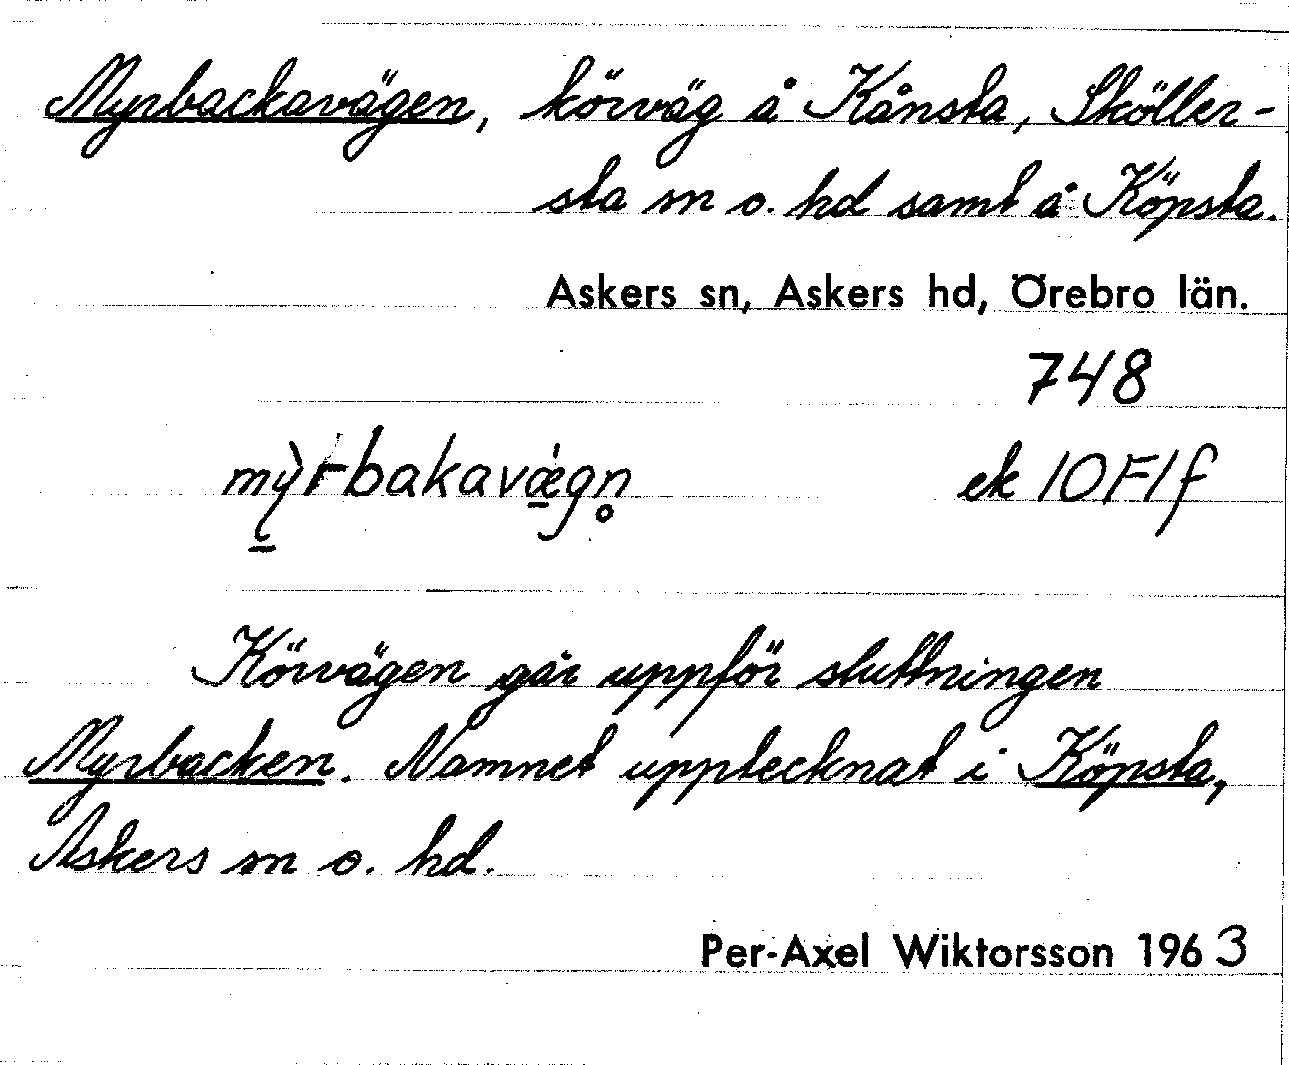 Myrbackavägen, körväg å Kånsta, Sköller-
sta sn o. hd samt å Köpsta.
Askers sn, Askers hd, Örebro län.
748
mỳrbakavǽgn̥ ek 10F1f
Körvägen går uppför sluttningen
Myrbacken. Namnet upptecknat i Köpsta,
Askers sn o. hd.
Per-Axel Wiktorsson 1963